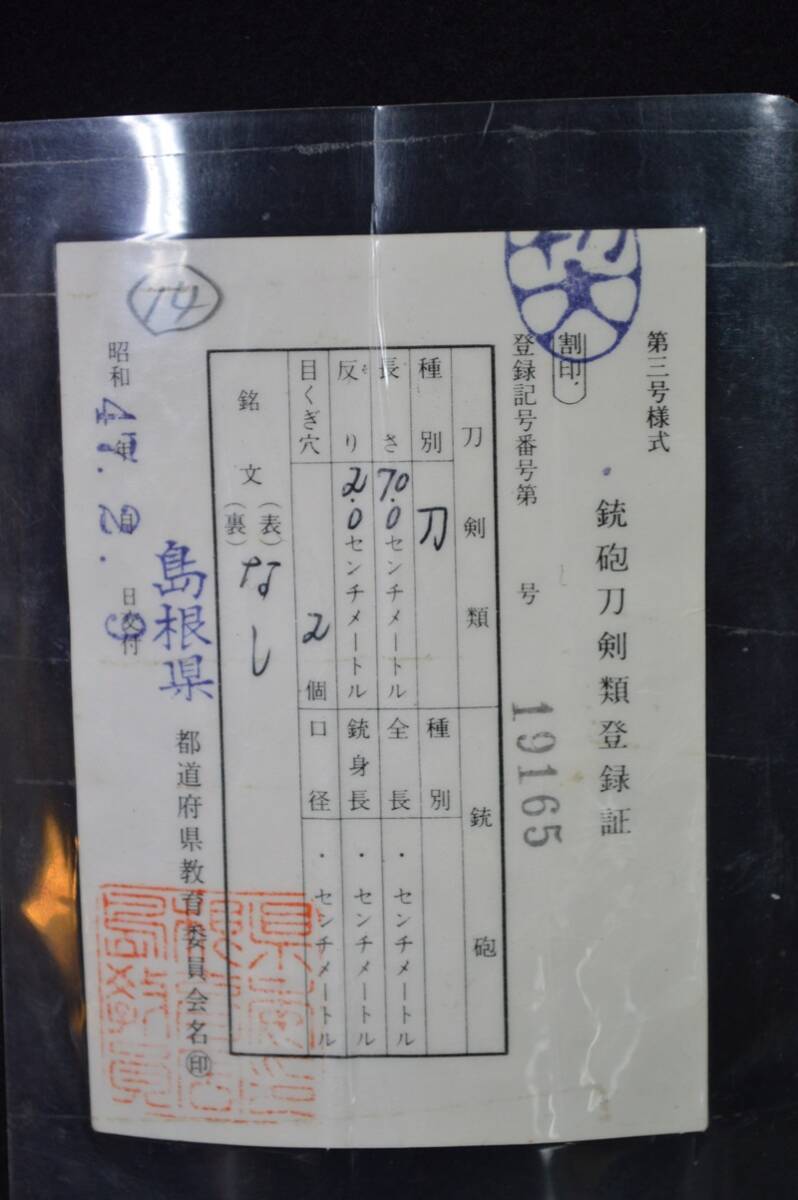 第三号様式
銃砲刀剣類登録証
割印
登録記号番号第 号 19165
刀剣類
種別 刀
長さ 70.0センチメートル
反り 2.0センチメートル
目くぎ穴 2個
銘文 (表) (裏) なし
銃砲
種別
全長 ・センチメートル
銃身長 ・センチメートル
口径 ・センチメートル
昭和 47年 2月 日交付
島根県 都道府県教育委員会名 印
74